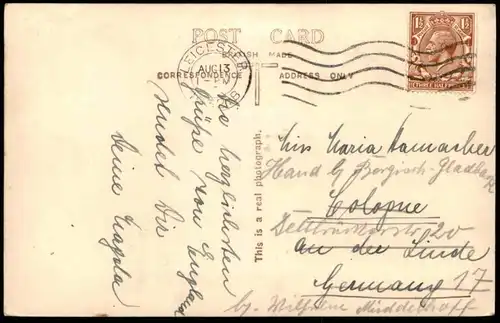 POST CARD
BRITISH MADE
CORRESPONDENCE
ADDRESS ONLY
LEICESTER
AUG 13
PM
1½ 1½
THREE HALF PENCE
Die herzlichsten
Grüße von England
sendet Dir
Deine
This is a real photograph.
Miss Maria Damascher
Hand b/ Bergisch-Gladbach
Cologne
20
an der Linde
Germany 17
by. Wilhelm Middelhoff